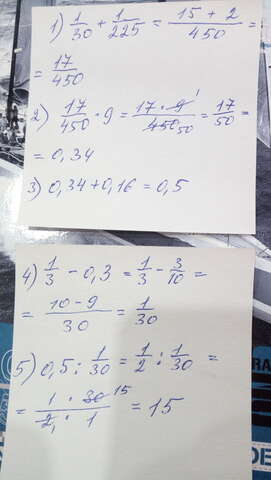 1) 1/30 + 1/225 = (15 + 2)/450 =
= 17/450
2) 17/450 · 9 = (17 · 9 1)/(450 50) = 17/50 =
= 0,34
3) 0,34 + 0,16 = 0,5
4) 1/3 - 0,3 = 1/3 - 3/10 =
= (10 - 9)/30 = 1/30
5) 0,5 : 1/30 = 1/2 : 1/30 =
= (1 · 30 15)/(2 1 · 1) = 15